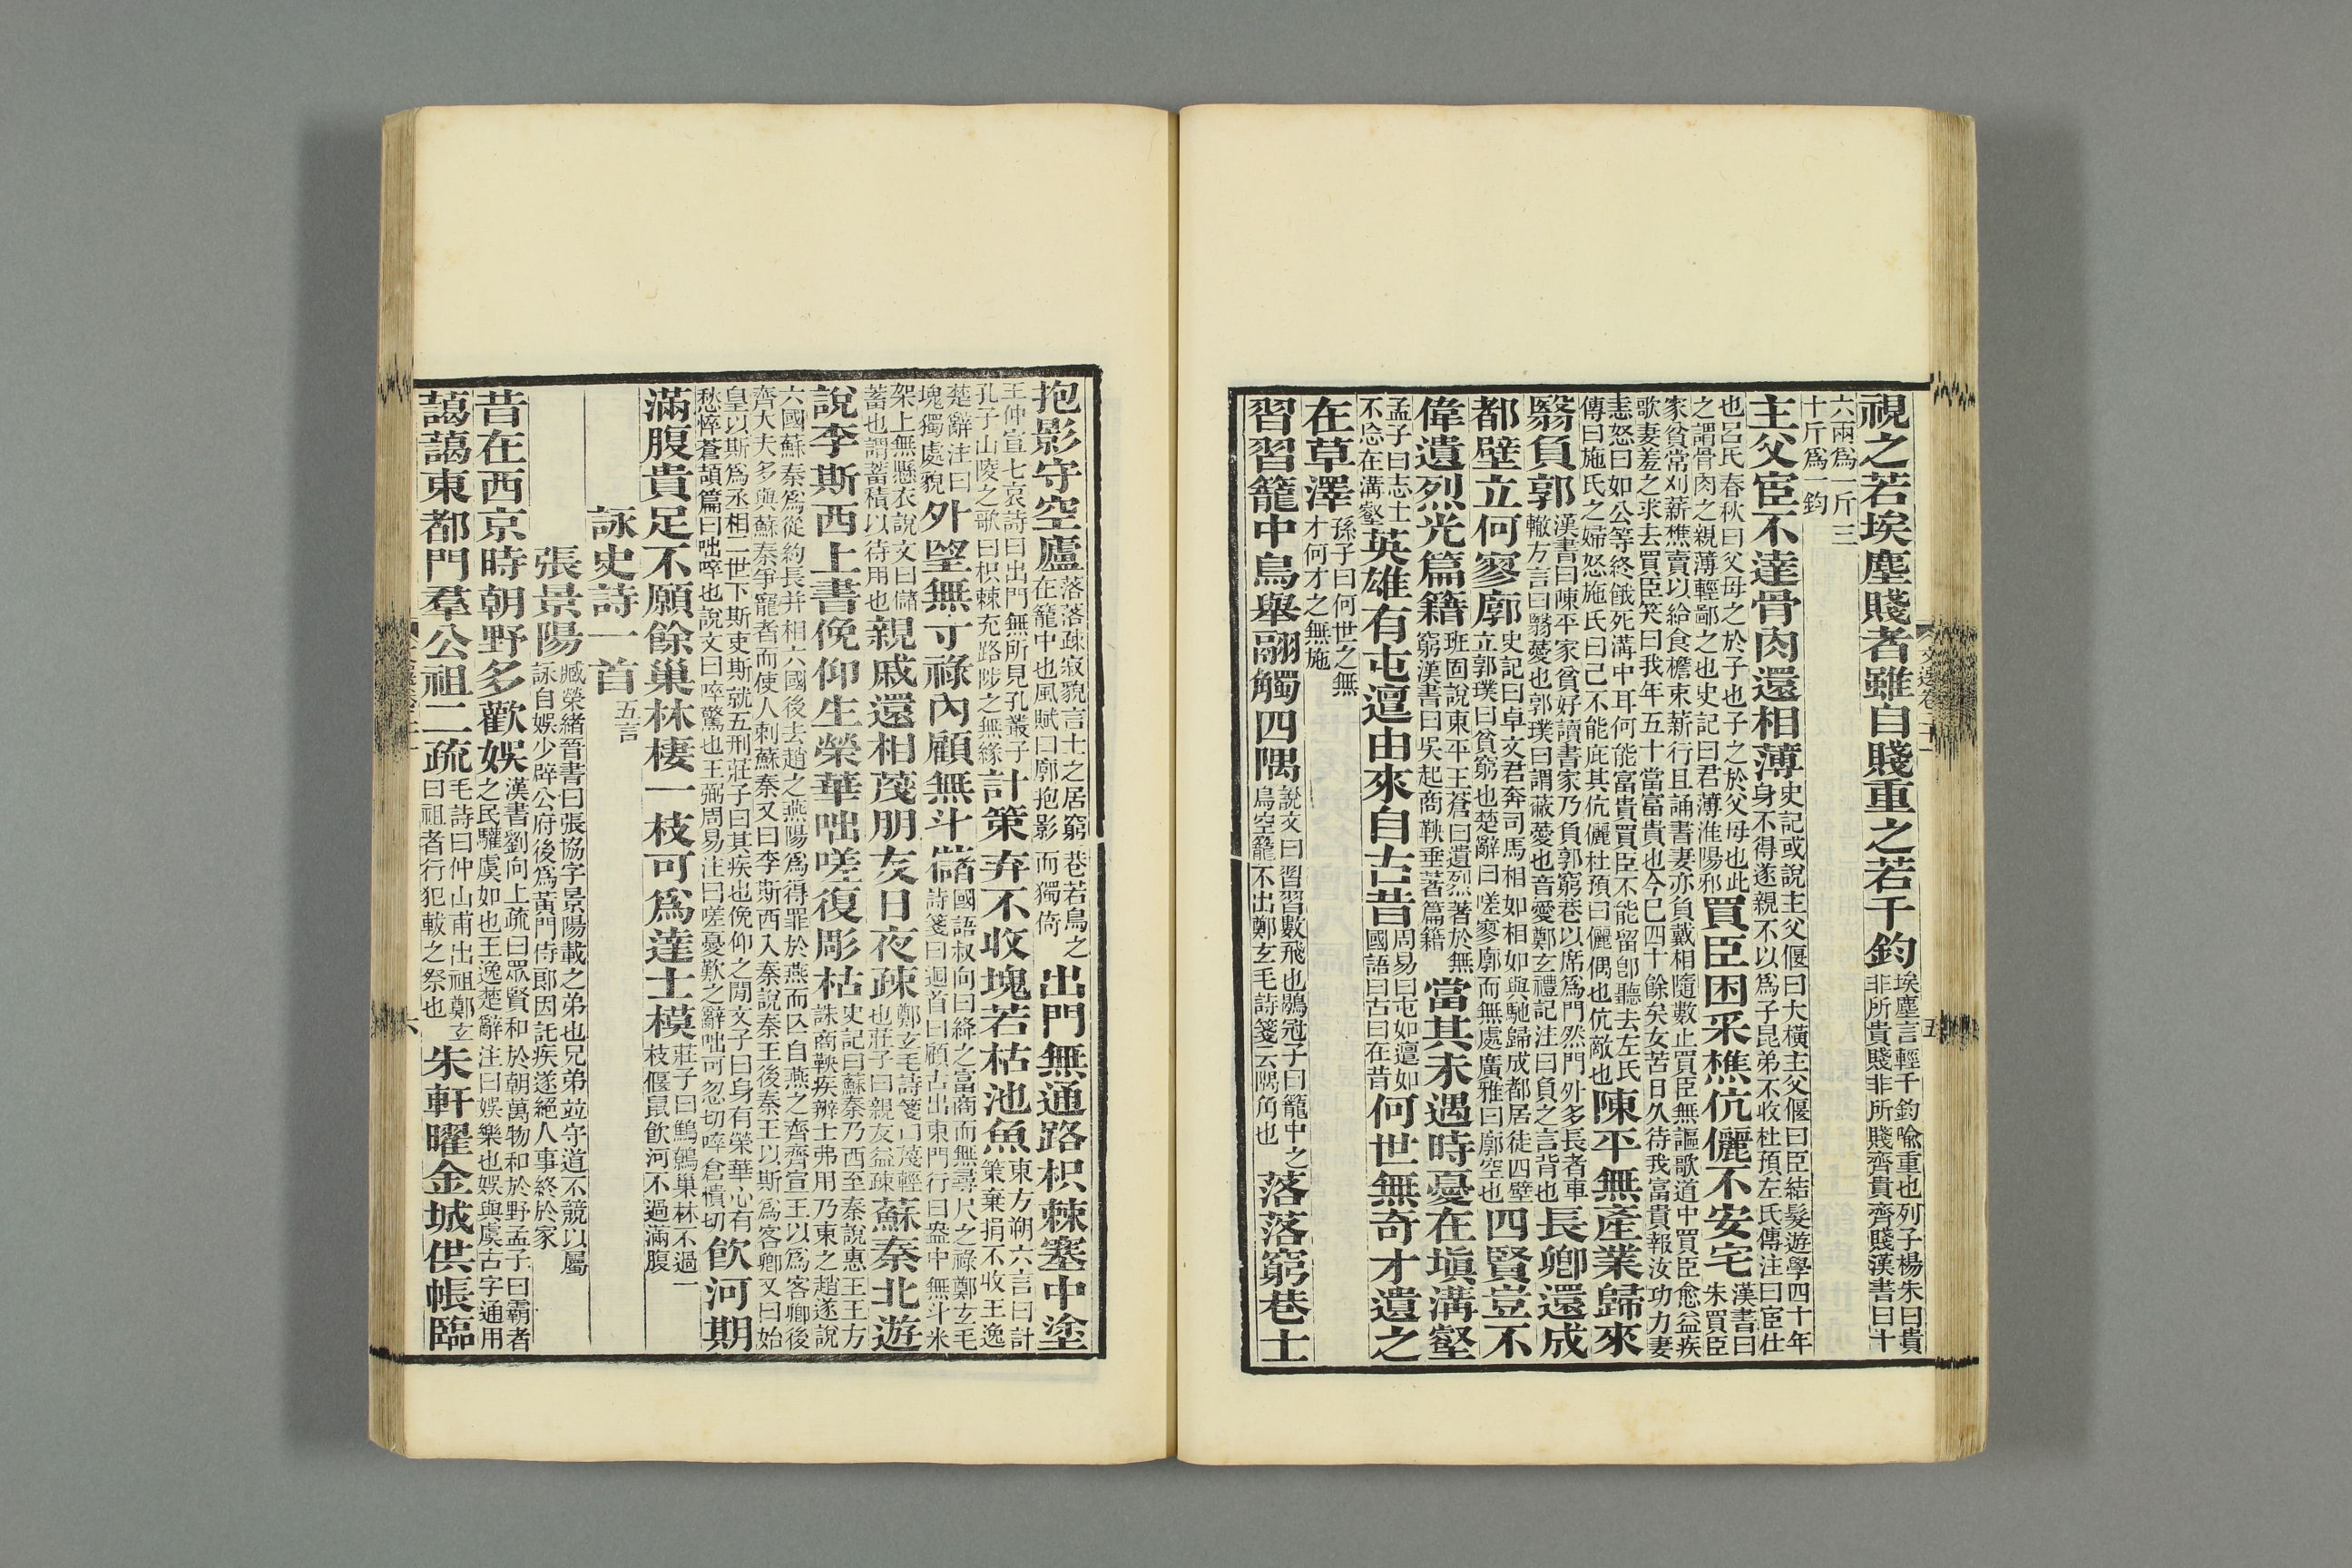 視之若埃塵賤者雖自賤重之若千鈞埃塵言輕千鈞喩重也列子楊朱曰貴非所貴賤非所賤齊貴齊賤漢書曰十
六兩爲一斤三十斤爲一鈞
主父宦不達骨肉還相薄史記或說主父偃曰大橫主父偃曰臣結髮遊學四十年身不得遂親不以爲子昆弟不收杜預左氏傳注曰宦仕
也呂氏春秋曰父母之於子也子之於父母也此之謂骨肉之親薄輕鄙之也史記曰君薄淮陽邪買臣困采樵伉儷不安宅漢書曰朱買臣
家貧常刈薪樵賣以給食擔束薪行且誦書妻亦負戴相隨數止買臣無謳歌道中買臣愈益疾歌妻羞之求去買臣笑曰我年五十當富貴也今已四十餘矣女苦日久待我富貴報汝功力妻
恚怒曰如公等終餓死溝中耳何能富貴買臣不能留卽聽去左氏傳曰施氏之婦怒施氏曰己不能庇其伉儷杜預曰儷偶也伉敵也陳平無產業歸來
翳負郭漢書曰陳平家貧好讀書家乃負郭窮巷以席爲門然門外多長者車轍方言曰翳薆也郭璞曰謂蔽薆也音愛鄭玄禮記注曰負之言背也長卿還成
都壁立何寥廓史記曰卓文君奔司馬相如相如與馳歸成都居徒四壁立郭璞曰貧窮也楚辭曰嗟寥廓而無處廣雅曰廓空也四賢豈不
偉遺烈光篇籍班固說東平王蒼曰遺烈著於無窮漢書曰吳起商鞅垂著篇籍當其未遇時憂在塡溝壑
孟子曰志士不忘在溝壑英雄有屯邅由來自古昔周易曰屯如邅如國語曰古曰在昔何世無奇才遺之
在草澤孫子曰何世之無才何才之無施
習習籠中鳥舉翮觸四隅說文曰習習數飛也鶡冠子曰籠中之鳥空籠不出鄭玄毛詩箋云隅角也落落窮巷士
抱影守空廬落落疎寂貌言士之居窮巷若鳥之在籠中也風賦曰廓抱影而獨倚出門無通路枳棘塞中塗
王仲宣七哀詩曰出門無所見孔叢子孔子山陵之歌曰枳棘充路陟之無緣計策弃不收塊若枯池魚東方朔六言曰計策棄捐不收王逸
楚辭注曰塊獨處貌外望無寸祿內顧無斗儲國語叔向曰絳之富商而無尋尺之祿鄭玄毛詩箋曰迴首曰顧古出東門行曰盎中無斗米
架上無懸衣說文曰儲蓄也謂蓄積以待用也親戚還相蔑朋友日夜疎鄭玄毛詩箋曰蔑輕也莊子曰親友益疎蘇秦北遊
說李斯西上書俛仰生榮華咄嗟復彫枯史記曰蘇秦乃西至秦說惠王王方誅商鞅疾辨士弗用乃東之趙遂說
六國蘇秦爲從約長并相六國後去趙之燕陽爲得罪於燕而亾自燕之齊齊宣王以爲客卿後齊大夫多與蘇秦爭寵者而使人刺蘇秦又曰李斯西入秦說秦王後秦王以斯爲客卿又曰始
皇以斯爲丞相二世下斯吏斯就五刑莊子曰其疾也俛仰之閒文子曰身有榮華心有愁悴蒼頡篇曰咄啐也說文曰啐驚也王弼周易注曰嗟憂歎之辭咄可忽切啐倉憒切飮河期
滿腹貴足不願餘巢林棲一枝可爲達士模莊子曰鷦鷯巢林不過一枝偃鼠飮河不過滿腹
詠史詩一首五言
張景陽臧榮緒晉書曰張協字景陽載之弟也兄弟並守道不競以屬詠自娛少辟公府後爲黃門侍郎因託疾遂絕人事終於家
昔在西京時朝野多歡娛漢書劉向上疏曰眾賢和於朝萬物和於野孟子曰霸者之民驩虞如也王逸楚辭注曰娛樂也娛與虞古字通用
藹藹東都門羣公祖二疏毛詩曰仲山甫出祖鄭玄曰祖者行犯軷之祭也朱軒曜金城供帳臨